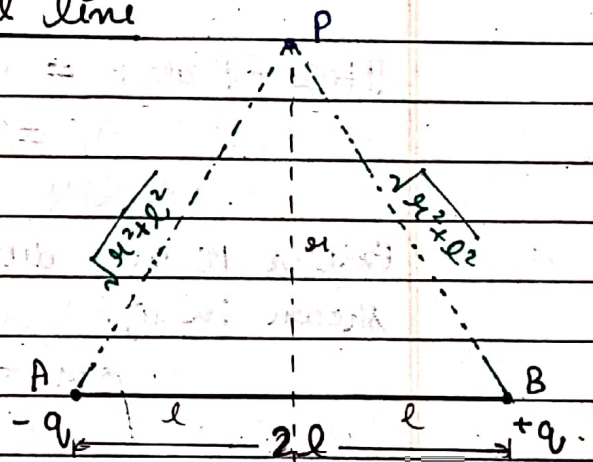 l line
P
√r²+l²
√r²+l²
r
A
B
-q
l
l
+q.
2l